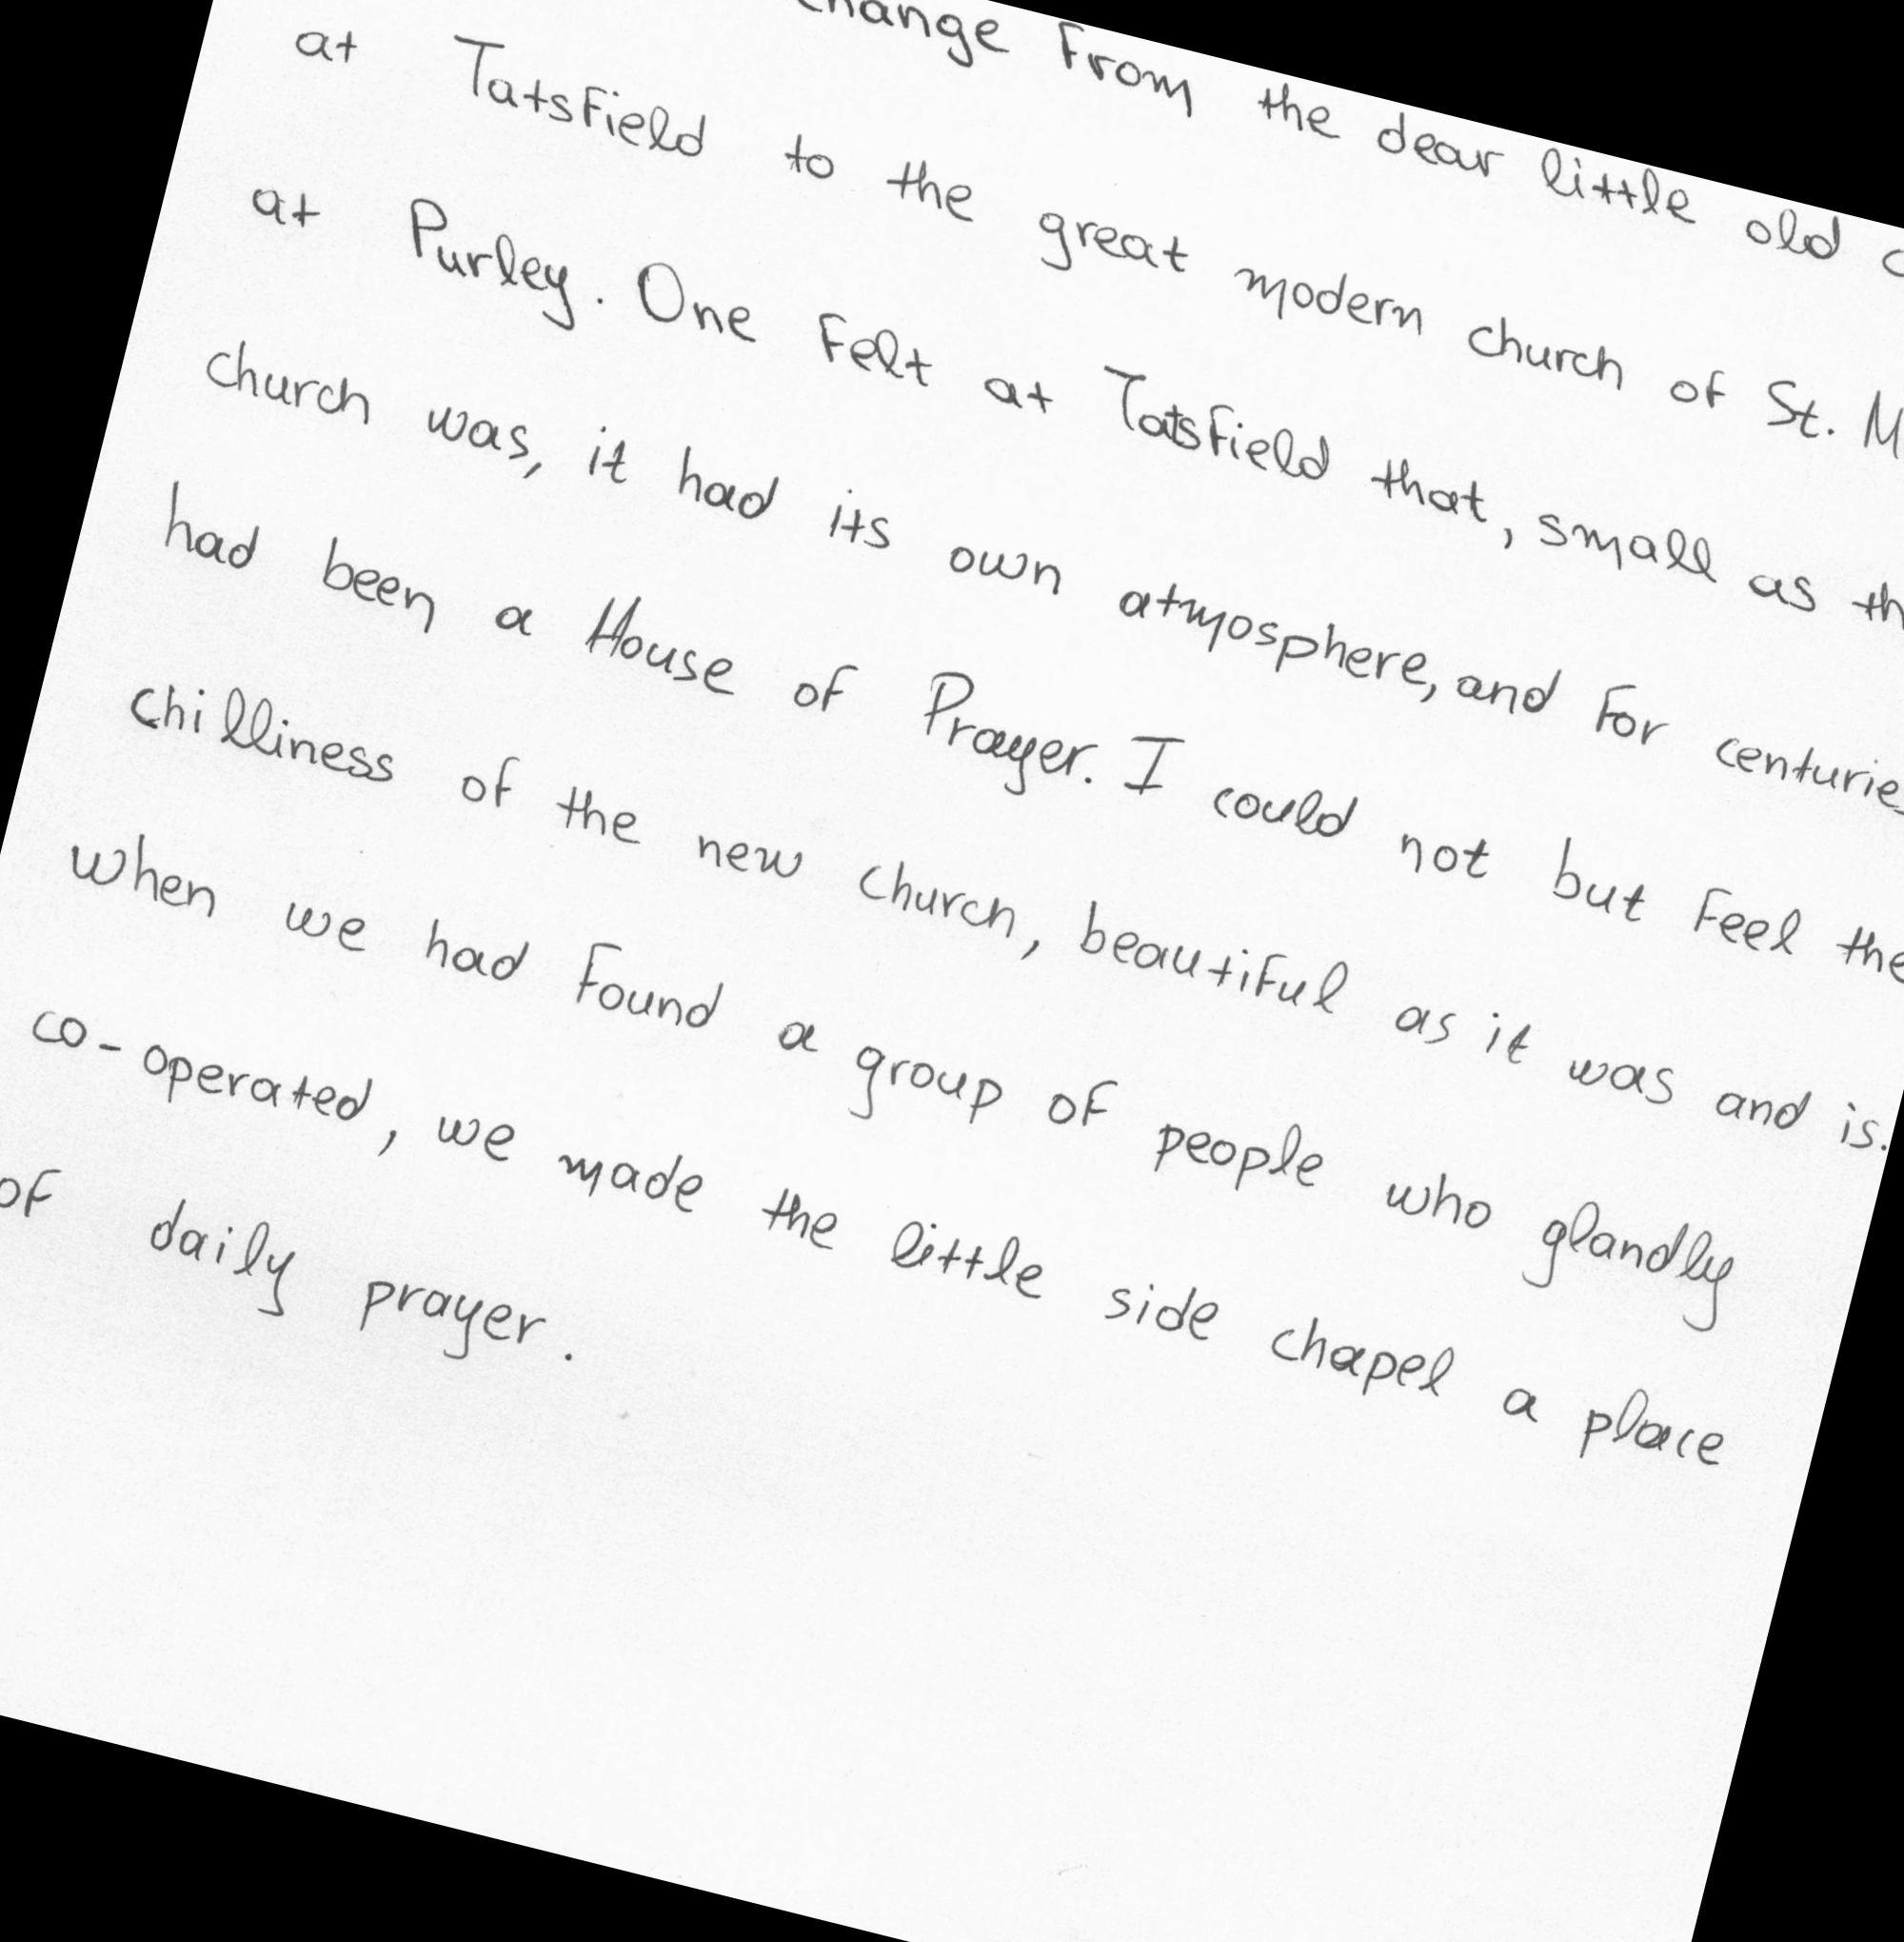 change from the dear little old
at Tatsfield to the great modern church of St. M
at Purley. One felt at Tatsfield that, small as th
church was, it had its own atmosphere, and for centuries
had been a House of Prayer. I could not but feel the
chilliness of the new church, beautiful as it was and is.
when we had found a group of people who glandly
co-operated, we made the little side chapel a place
of daily prayer.